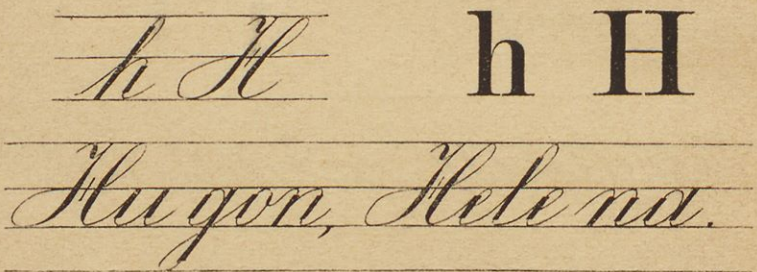 h H h H
Hugon, Helena.